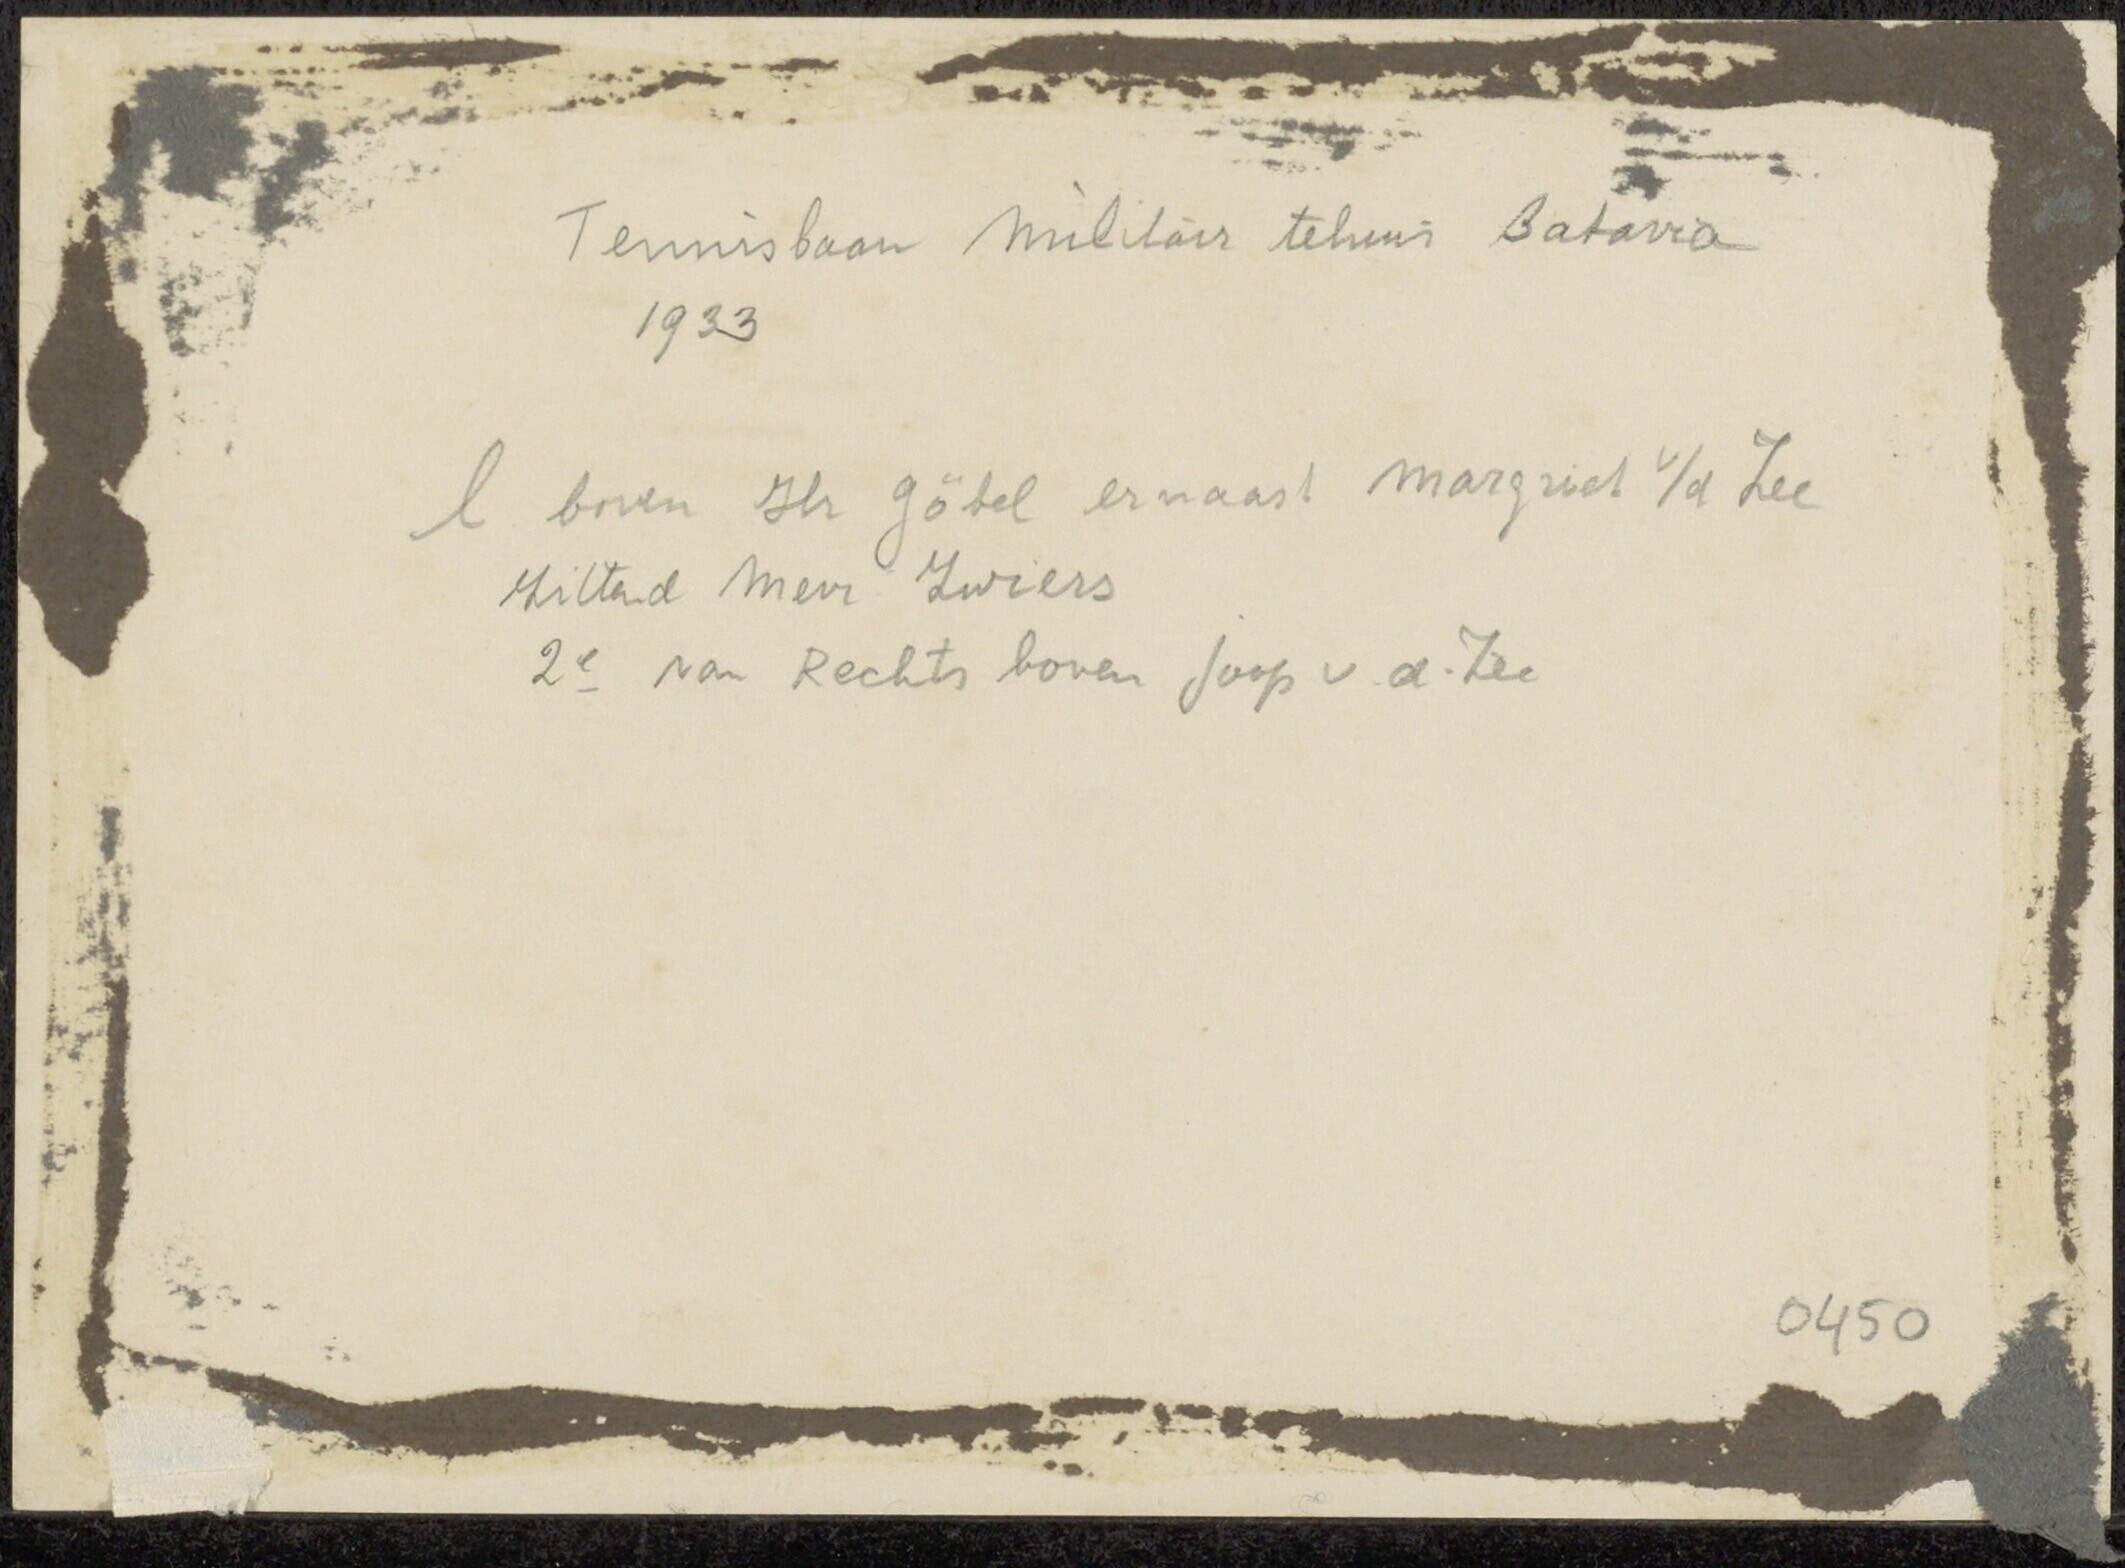 Tennisbaan Militair tehuis Batavia
1933
l boven Hr Göbel ernaast Margriet v/d Zee
Zittend Mevr Zwiers
2e van Rechts boven Joop v.d. Zee
0450